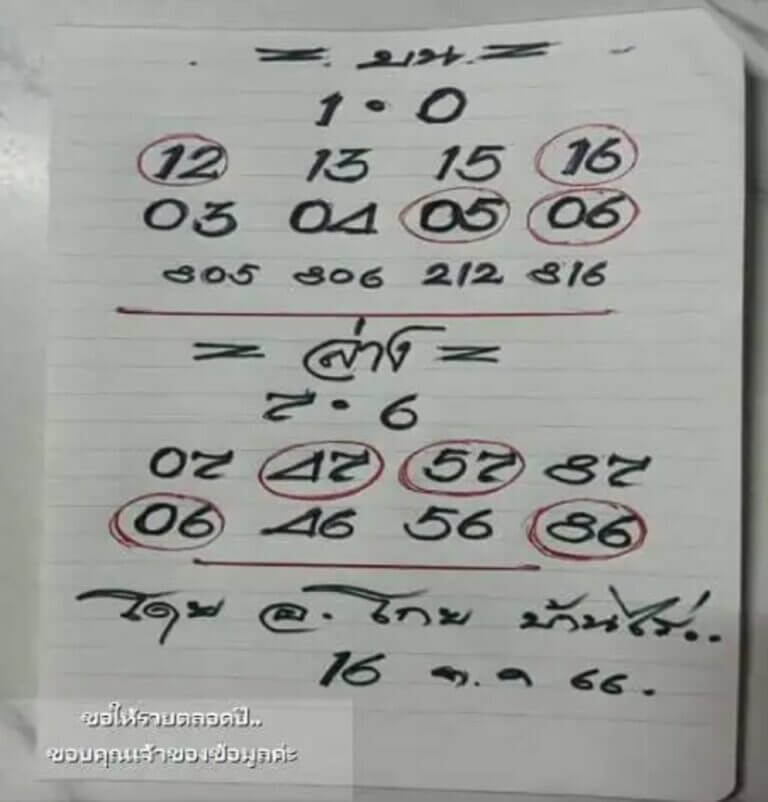 = บน =
1 • 0
12 13 15 16
03 04 05 06
805 806 212 816
= ล่าง =
7 • 6
07 47 57 87
06 46 56 86
โดย อ. โกย บ้านไร่..
16 ต.ค 66.
ขอให้รวยตลอดปี..
ขอบคุณเจ้าของข้อมูลค่ะ